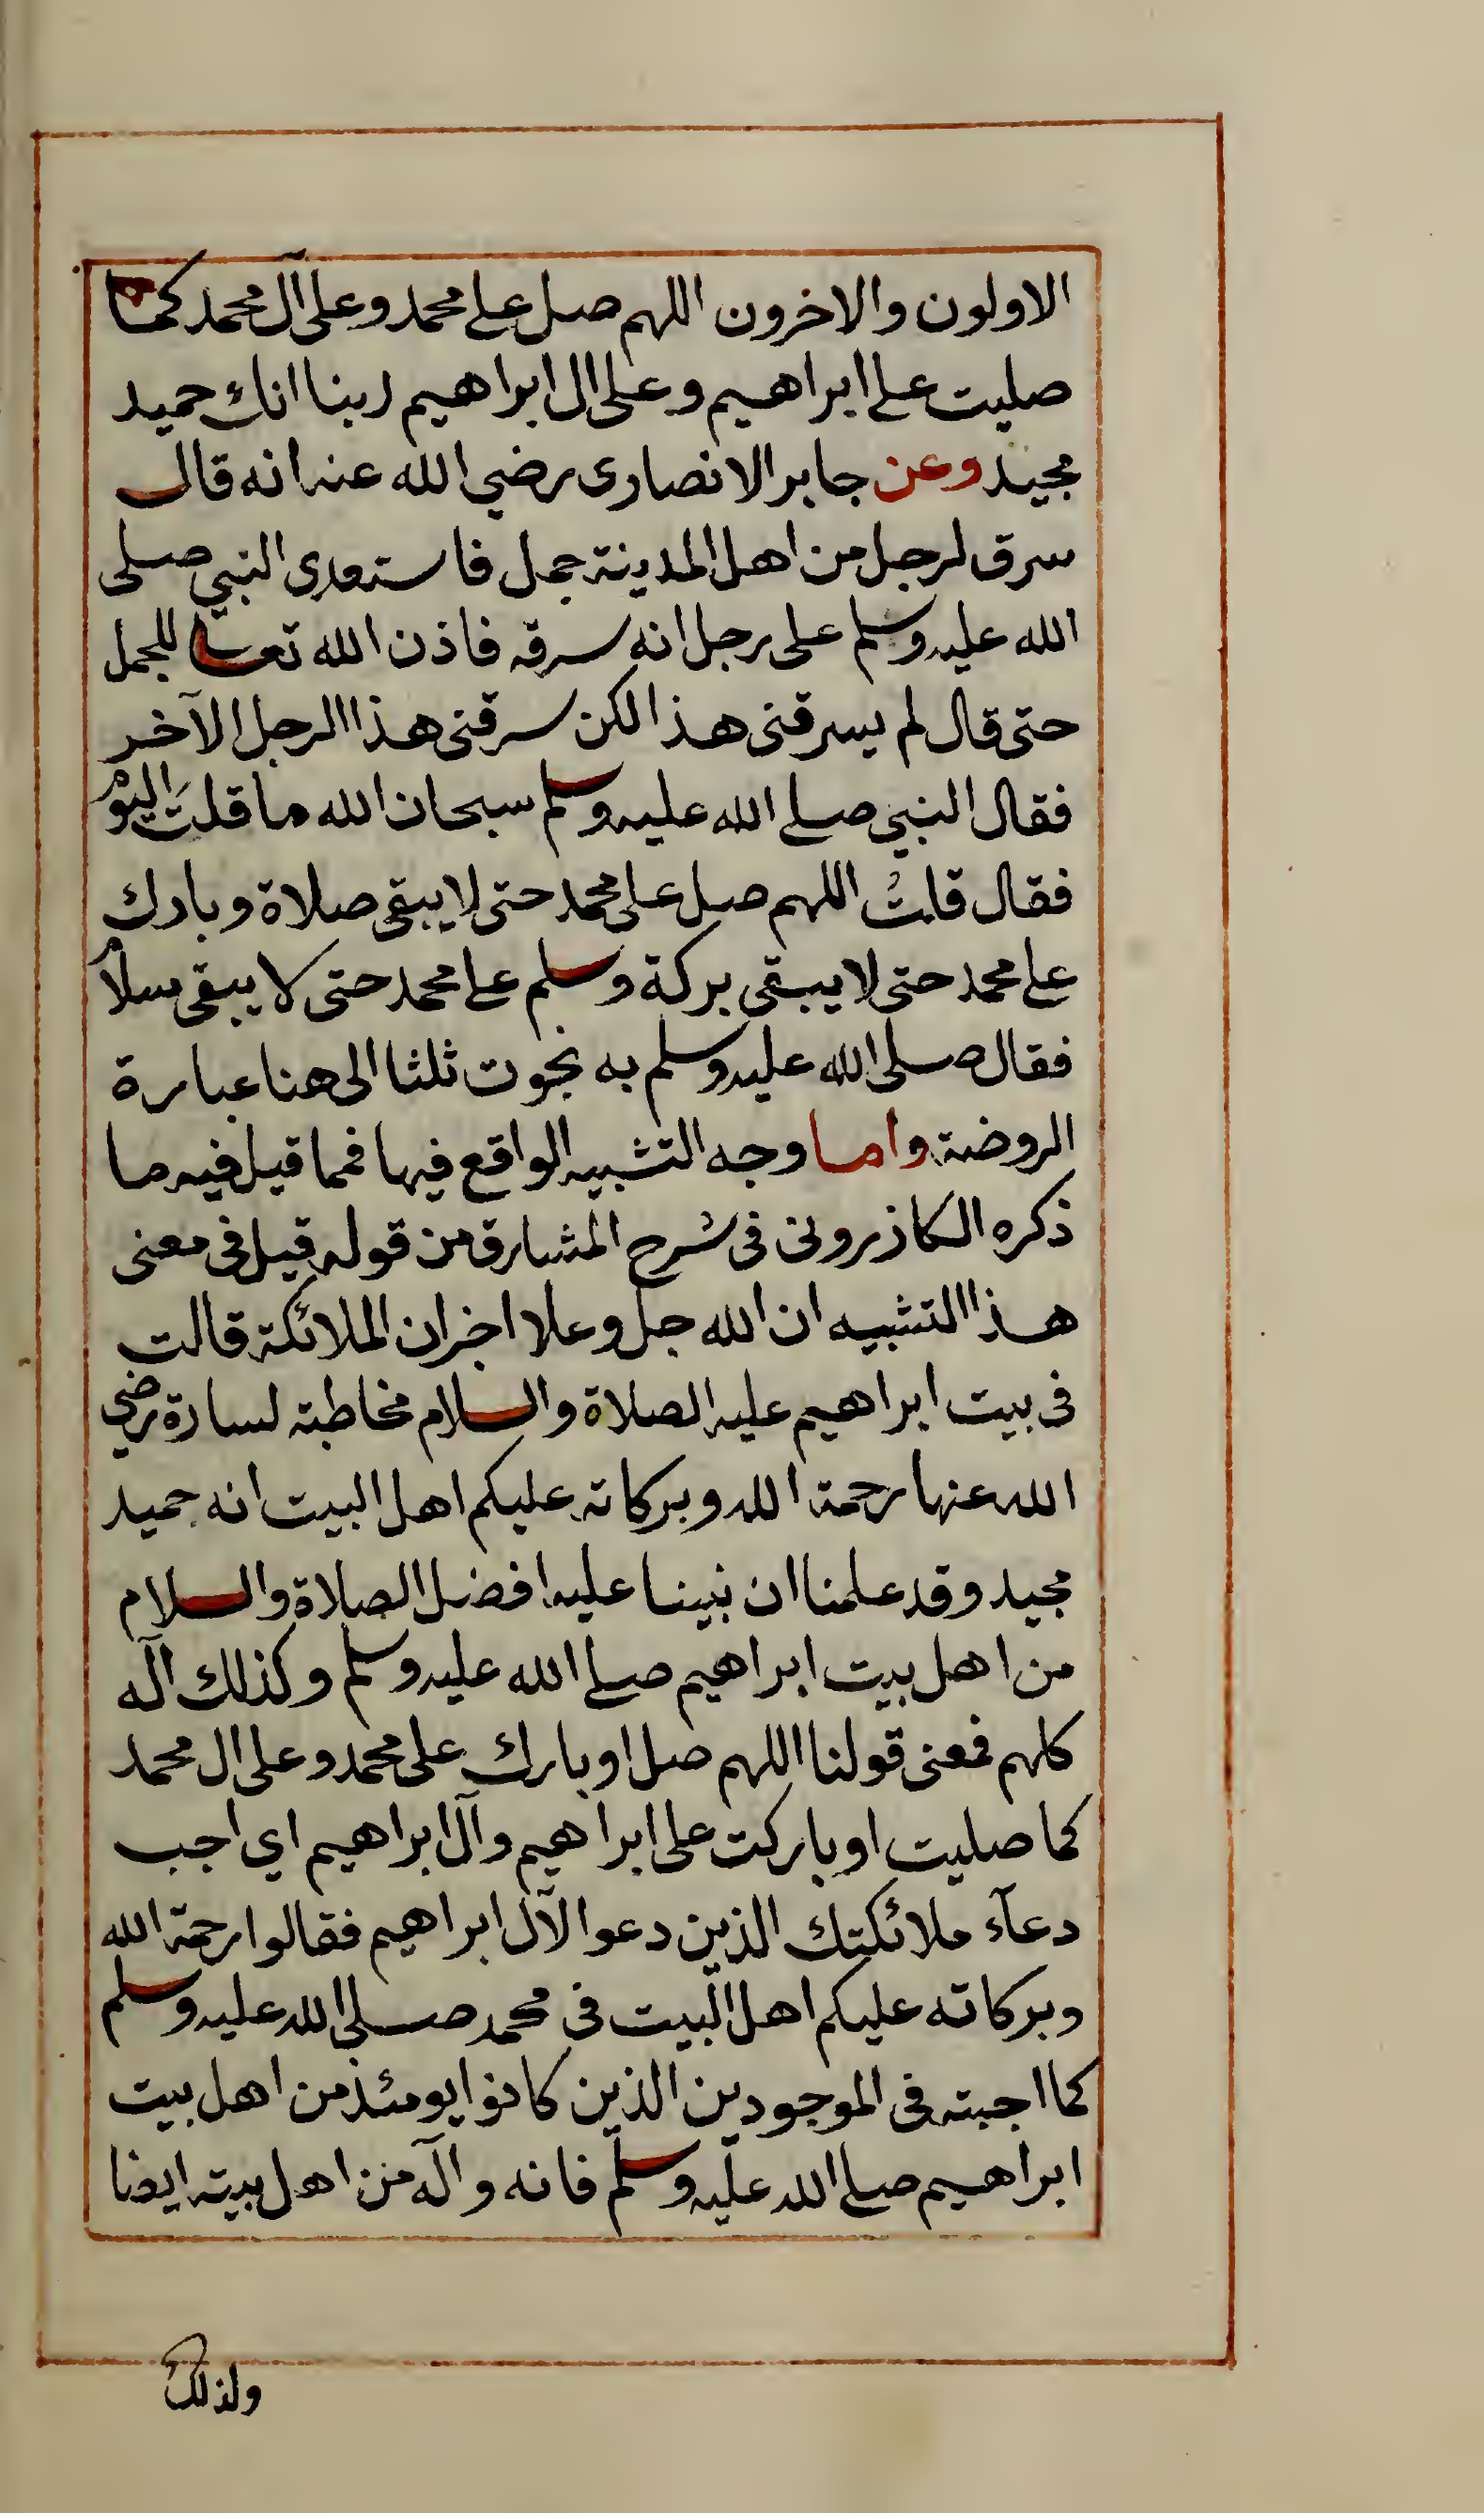 الاولون والاخرون اللهم صل على محمد وعلى آل محمد كما
صليت على ابراهيم وعلى ال ابراهيم ربنا انك حميد
مجيد وعن جابر الانصارى رضي الله عنه انه قال
سرق لرجل من اهل المدينة جمل فاستعدى النبي صلى
الله عليه وسلم على رجل انه سرقه فاذن الله تعا للجمل
حتى قال لم يسرقنى هذا لكن سرقنى هذا الرجل الآخر
فقال النبي صلى الله عليه وسلم سبحان الله ما قلتَ اليوم
فقال قلتُ اللهم صل على محمد حتى لا يبقى صلاة وبارك
على محمد حتى لا يبقى بركة وسلم على محمد حتى لا يبقى سلام
فقال صلى الله عليه وسلم به نجوت ثلثا الى هنا عبارة
الروضة واما وجه التشبيه الواقع فيها فمما قيل فيه ما
ذكره الكازرونى فى شرح المشارق من قوله قيل فى معنى
هذا التشبيه ان الله جل وعلا اخبر ان الملائكة قالت
فى بيت ابراهيم عليه الصلاة والسلام مخاطبة لسارة رضي
الله عنها رحمة الله وبركاته عليكم اهل البيت انه حميد
مجيد وقد علمنا ان نبينا عليه افضل الصلاة والسلام
من اهل بيت ابراهيم صلى الله عليه وسلم وكذلك آله
كلهم فمعنى قولنا اللهم صل او بارك على محمد وعلى ال محمد
كما صليت او باركت على ابراهيم وآل ابراهيم اي اجب
دعآء ملائكتك الذين دعوا لآل ابراهيم فقالوا رحمة الله
وبركاته عليكم اهل البيت فى محمد صلى الله عليه وسلم
كما اجبته فى الموجودين الذين كانوا يومئذ من اهل بيت
ابراهيم صلى الله عليه وسلم فانه وآله من اهل بيته ايضا
ولذلك